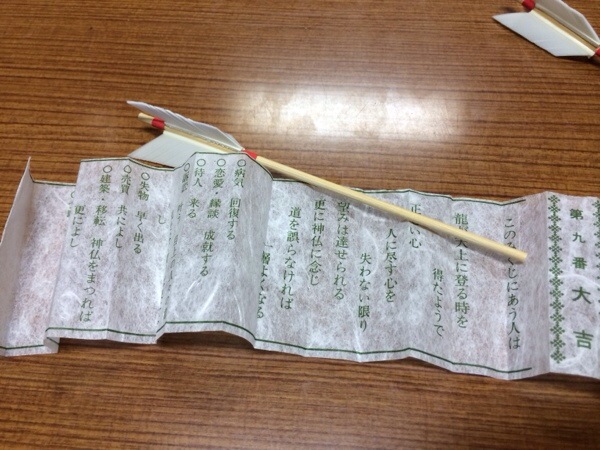 第九番 大吉
このみくじにあう人は
龍が天上に登る時を
得たようで
正しい心
人に尽す心を
失わない限り
望みは達せられる
更に神仏に念じ
道を誤らなければ
よくなる
○病気 回復する
○恋愛・縁談 成就する
○待人 来る
し
○失物 早く出る
○売買 共によし
○建築 移転 神仏をまつれば
更によし